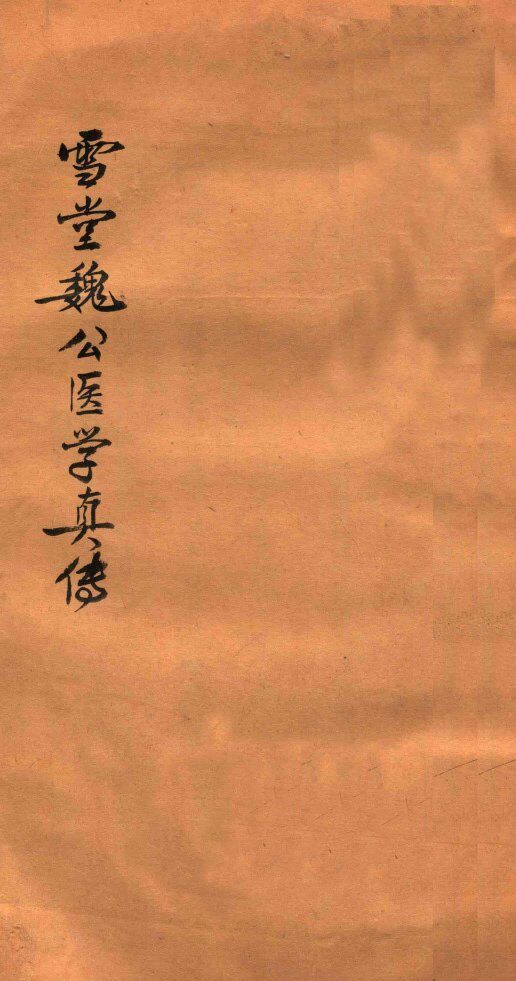 雪堂魏公医学真传